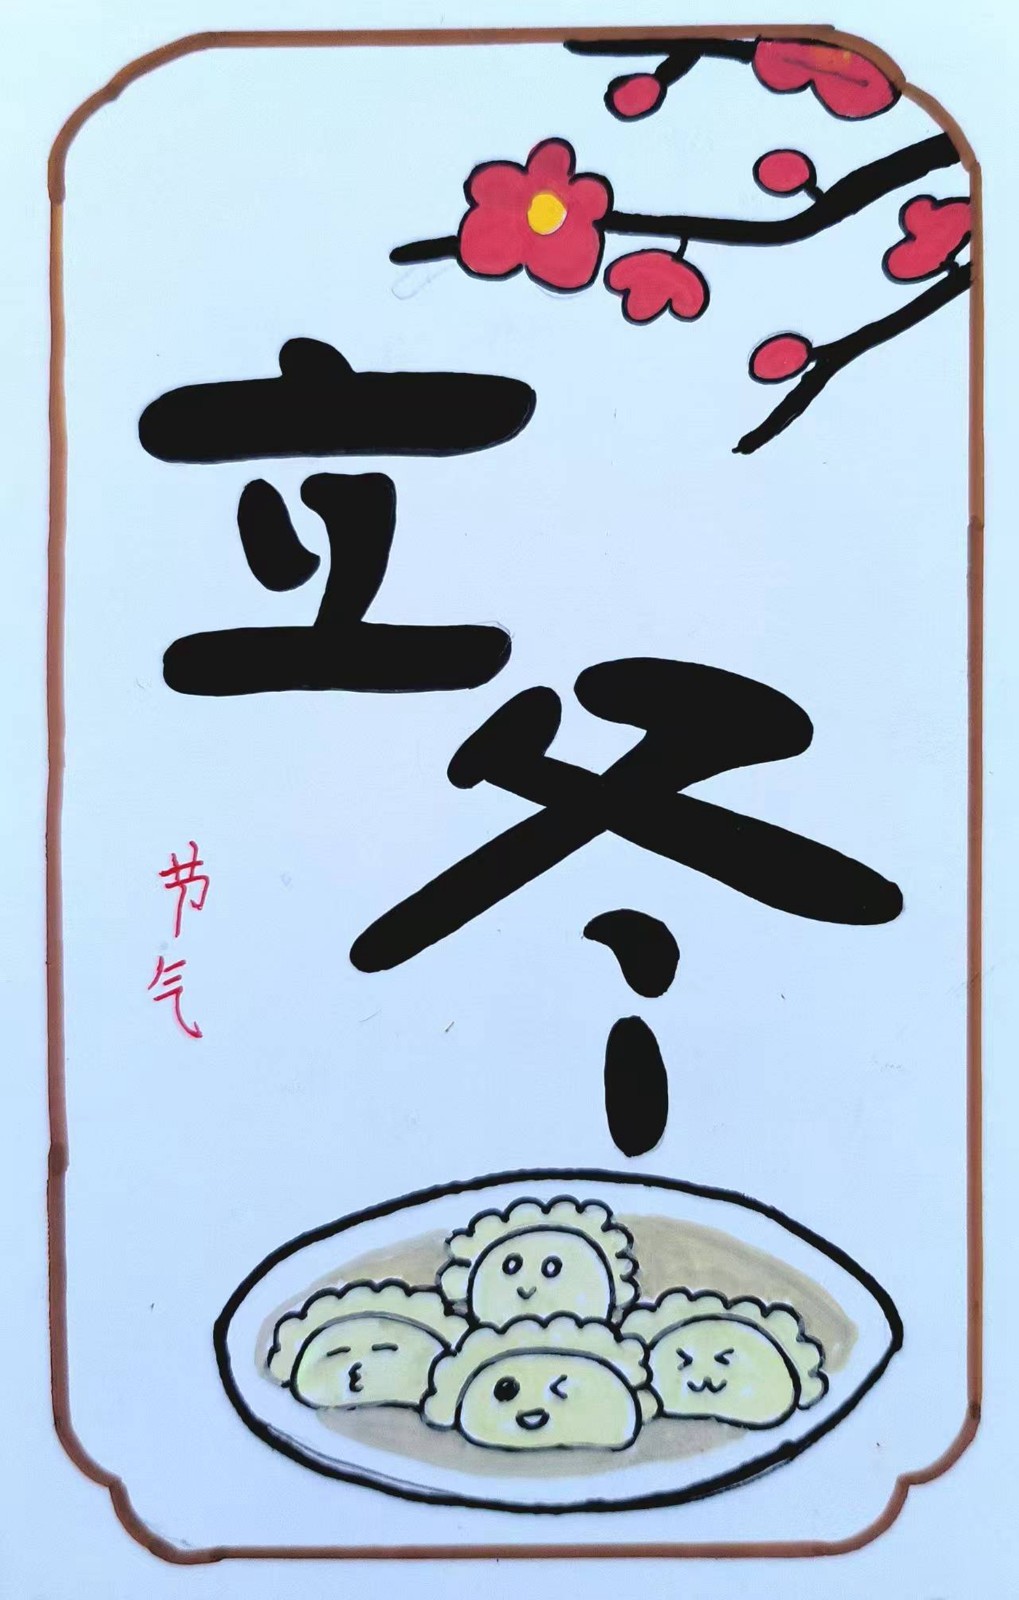 立冬
节气